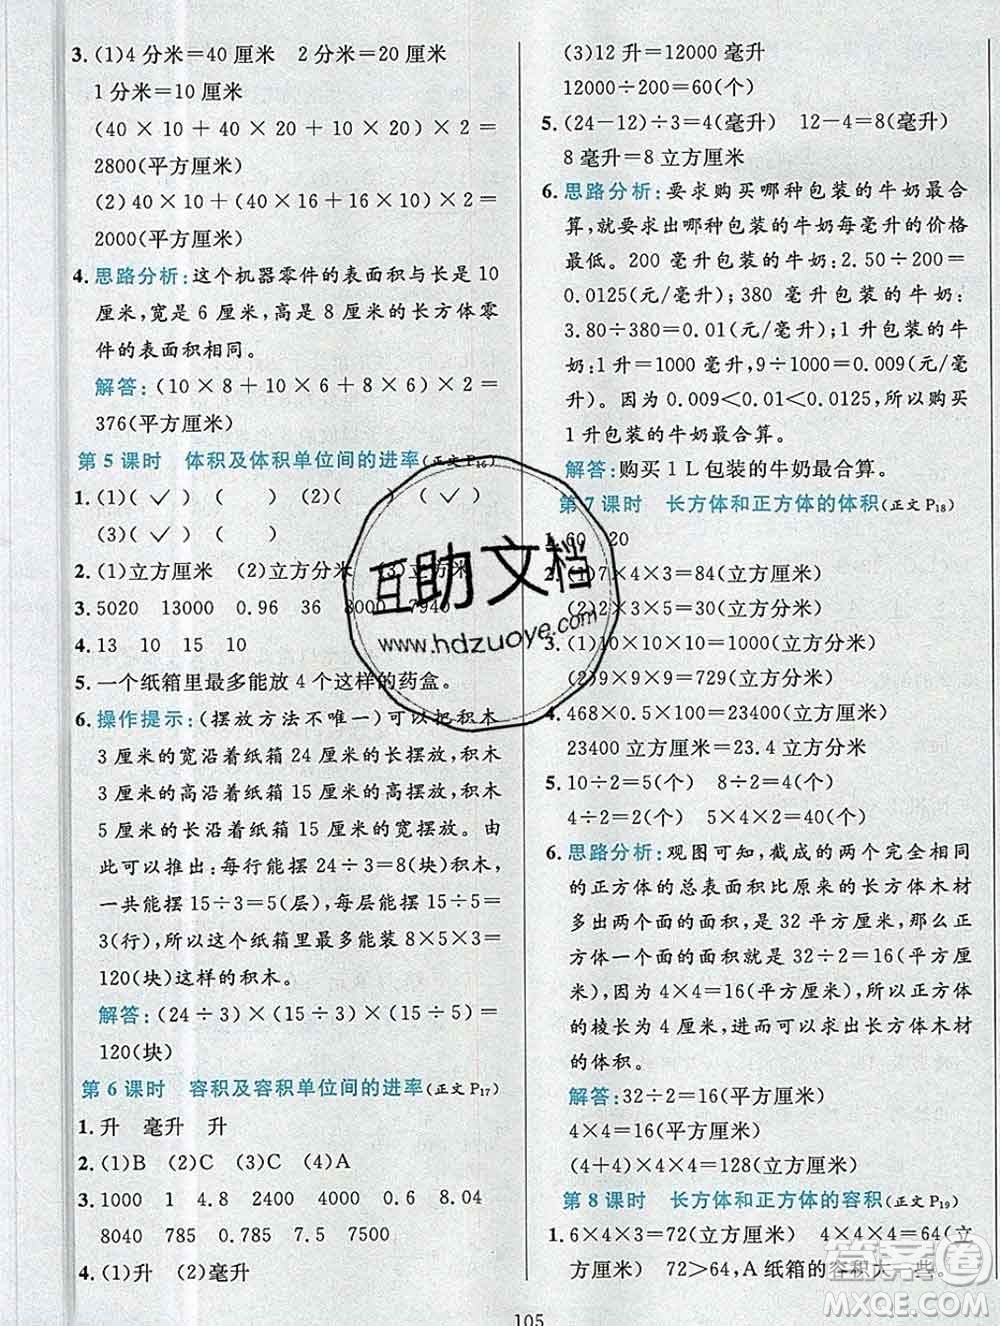 3. (1)4 分米=40 厘米 2 分米=20 厘米
1 分米=10 厘米
(40 × 10 + 40 × 20 + 10 × 20) × 2 =
2800(平方厘米)
(2)(40 × 10 + 40 × 16 + 16 × 10) × 2 =
2000(平方厘米)
4. 思路分析:这个机器零件的表面积与长是 10
厘米,宽是 6 厘米,高是 8 厘米的长方体零
件的表面积相同。
解答:(10 × 8 + 10 × 6 + 8 × 6) × 2 =
376(平方厘米)
第 5 课时 体积及体积单位间的进率(正文 P16)
1. (1)( ✓ ) ( ) (2)( ) ( ✓ )
(3)( ✓ ) ( )
2. (1)立方厘米 (2)立方分米 (3)立方米
3. 5020 13000 0.96 36 8000 7940
4. 13 10 15 10
5. 一个纸箱里最多能放 4 个这样的药盒。
6. 操作提示:(摆放方法不唯一)可以把积木
3 厘米的宽沿着纸箱 24 厘米的长摆放,积木
3 厘米的高沿着纸箱 15 厘米的高摆放,积木
5 厘米的长沿着纸箱 15 厘米的宽摆放。由
此可以推出:每行能摆 24÷3=8(块)积木,
一共能摆 15÷3=5(层),每层能摆 15÷5=
3(行),所以这个纸箱里最多能摆 8×5×3=
120(块)这样的积木。
解答:(24 ÷ 3) × (15 ÷ 3) × (15 ÷ 5) =
120(块)
第 6 课时 容积及容积单位间的进率(正文 P17)
1. 升 毫升 升
2. (1)B (2)C (3)C (4)A
3. 1000 1 4.8 2400 4000 0.6 8.04
8040 785 0.785 7.5 7500
4. (1)升 (2)毫升
(3)12 升=12000 毫升
12000÷200=60(个)
5. (24-12)÷3=4(毫升) 12-4=8(毫升)
8 毫升=8 立方厘米
6. 思路分析:要求购买哪种包装的牛奶最合
算,就要求出哪种包装的牛奶每毫升的价格
最低。200 毫升包装的牛奶:2.50÷200=
0.0125(元/毫升);380 毫升包装的牛奶:
3.80÷380=0.01(元/毫升);1 升包装的牛
奶:1 升=1000 毫升,9÷1000=0.009(元/毫
升)。因为 0.009<0.01<0.0125,所以购买
1 升包装的牛奶最合算。
解答:购买 1 L 包装的牛奶最合算。
第 7 课时 长方体和正方体的体积(正文 P18)
1. 60 20
2. (1)7×4×3=84(立方厘米)
(2)2×3×5=30(立方分米)
3. (1)10×10×10=1000(立方分米)
(2)9×9×9=729(立方厘米)
4. 468×0.5×100=23400(立方厘米)
23400 立方厘米=23.4 立方分米
5. 10÷2=5(个) 8÷2=4(个)
4÷2=2(个) 5×4×2=40(个)
6. 思路分析:观图可知,截成的两个完全相同
的正方体的总表面积比原来的长方体木材
多出两个面的面积,是 32 平方厘米,那么正
方体一个面的面积就是 32÷2=16(平方厘
米),因为 4×4=16(平方厘米),所以正方体
的棱长为4 厘米,进而可以求出长方体木材
的体积。
解答:32÷2=16(平方厘米)
4×4=16(平方厘米)
(4+4)×4×4=128(立方厘米)
第 8 课时 长方体和正方体的容积(正文 P19)
1. 6×4×3=72(立方厘米) 4×4×4=64(立
方厘米) 72>64,A 纸箱的容积大一些。
105
互助文档
www.hdzuoye.com
答案圈
MXQE.COM